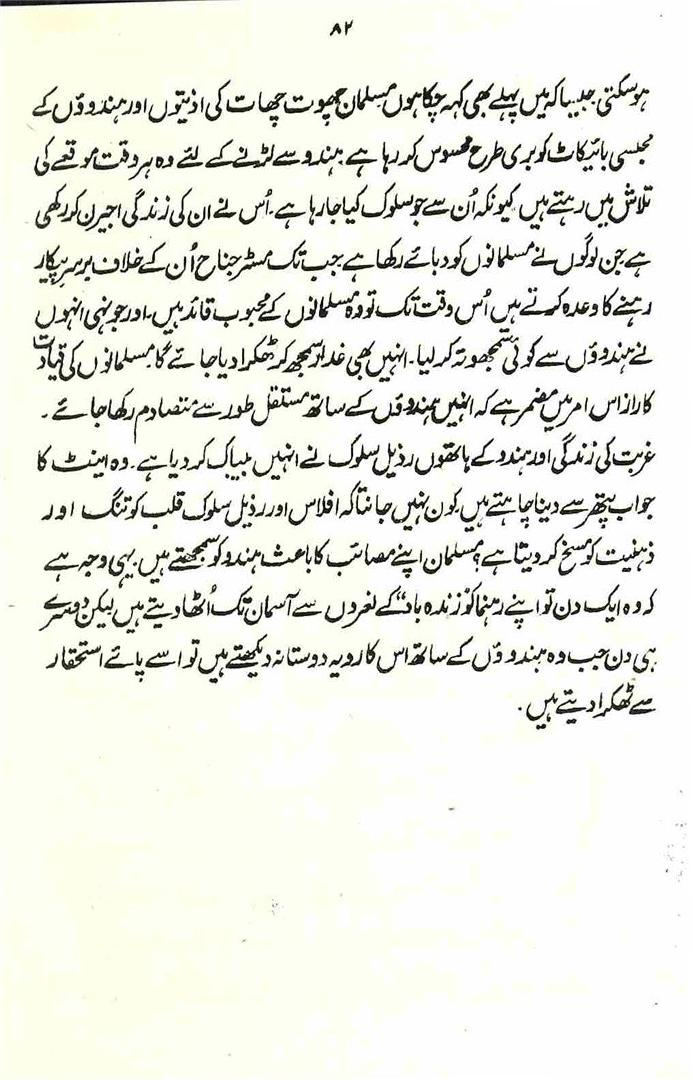 ۸۲
ہوسکتی جیسا کہ میں پہلے بھی کہہ چکا ہوں مسلمان چھوت چھات کی اذیتوں اور ہندوؤں کے
مجلسی بائیکاٹ کو بری طرح محسوس کر رہا ہے ہندو سے لڑنے کے لئے وہ ہر وقت موقعے کی
تلاش میں رہتے ہیں کیونکہ اُن سے جو سلوک کیا جا رہا ہے۔ اُس نے ان کی زندگی اجیرن کر رکھی
ہے جن لوگوں نے مسلمانوں کو دبائے رکھا ہے جب تک مسٹر جناح اُن کے خلاف برسرپیکار
رہنے کا وعدہ کرتے ہیں اُس وقت تک تو وہ مسلمانوں کے محبوب قائد ہیں۔ اور جونہی انہوں
نے ہندوؤں سے کوئی سمجھوتہ کر لیا۔ انہیں بھی غدار سمجھ کر ٹھکرا دیا جائے گا۔ مسلمانوں کی قیادت
کا راز اس امر میں مضمر ہے کہ انہیں ہندوؤں کے ساتھ مستقل طور سے متصادم رکھا جائے۔
غربت کی زندگی اور ہندو کے ہاتھوں رذیل سلوک نے انہیں بیباک کر دیا ہے۔ وہ اینٹ کا
جواب پتھر سے دینا چاہتے ہیں۔ کون نہیں جانتا کہ افلاس اور رذیل سلوک قلب کو تنگ اور
ذہنیت کو مسخ کر دیتا ہے؟ مسلمان اپنے مصائب کا باعث ہندو کو سمجھتے ہیں۔ یہی وجہ ہے
کہ وہ ایک دن تو اپنے رہنما کو ”زندہ باد“ کے نعروں سے آسمان تک اُٹھا دیتے ہیں لیکن دوسرے
ہی دن جب وہ ہندوؤں کے ساتھ اس کا رویہ دوستانہ دیکھتے ہیں تو اسے پائے استحقار
سے ٹھکرا دیتے ہیں۔